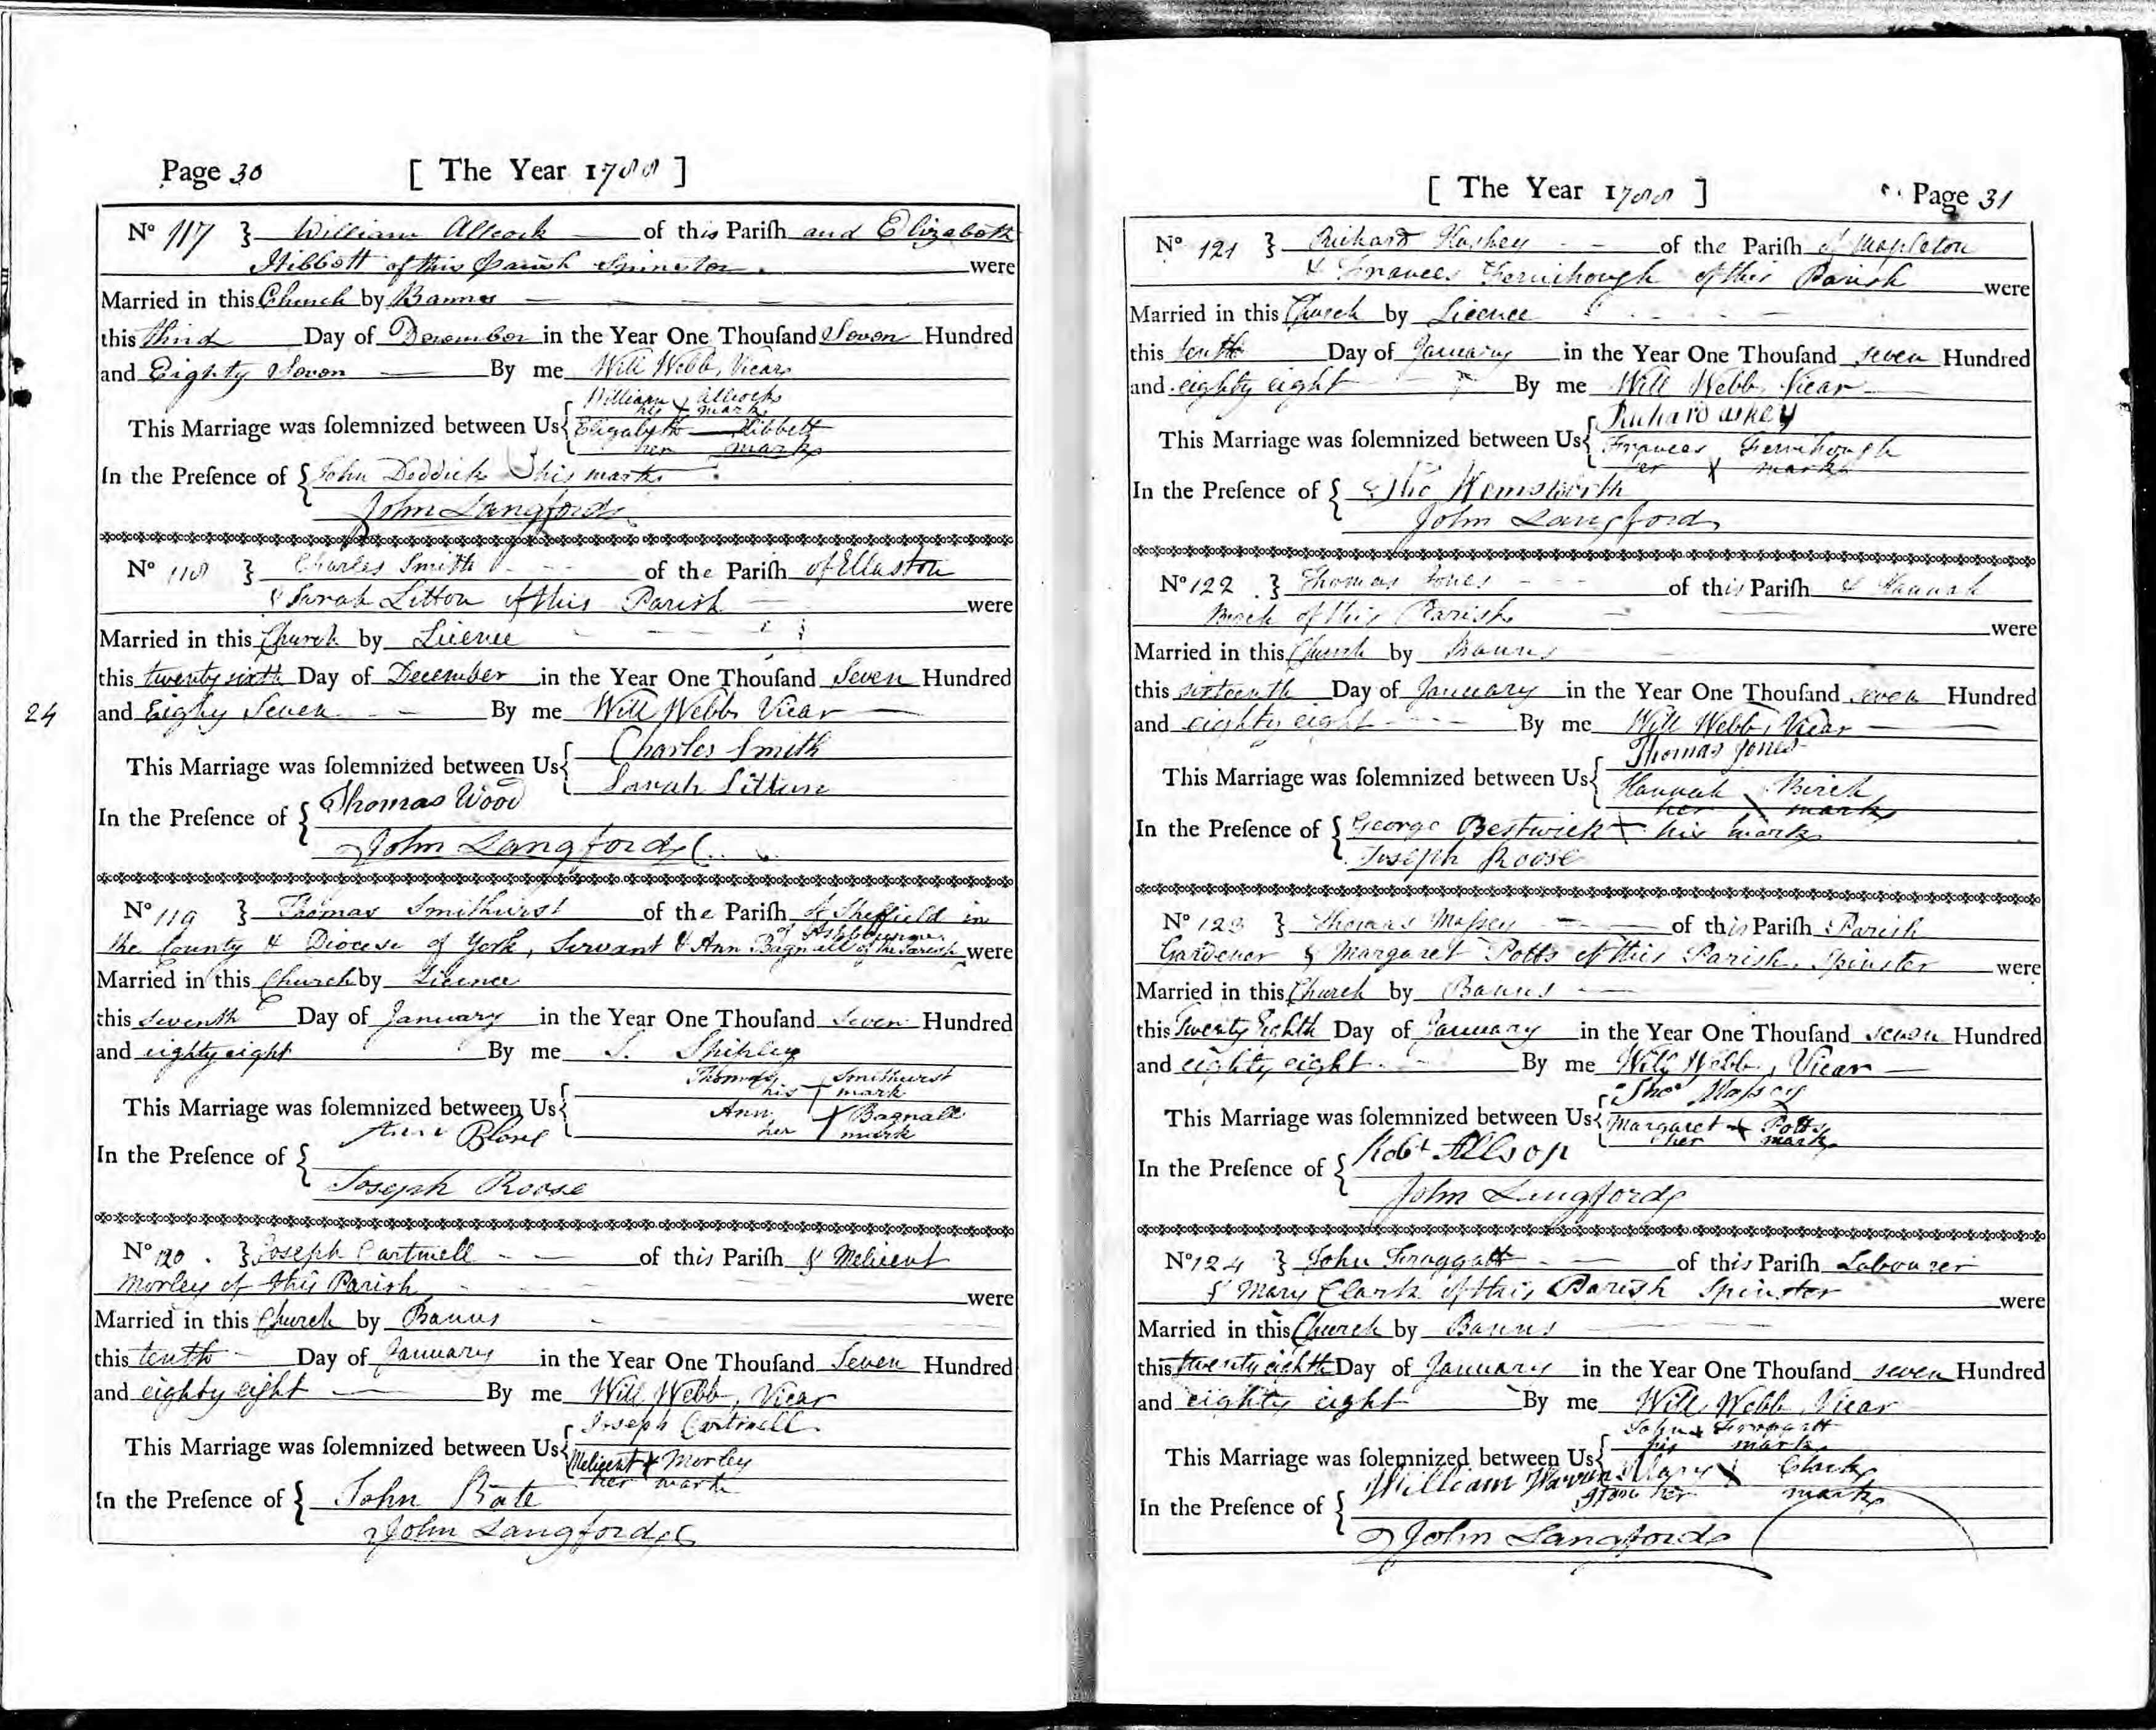 Page 30 [ The Year 1788 ]
No 117 } William Allcock of this Pariſh and Elizabeth
Hibbott of this Parish Spinster were
Married in this Church by Banns
this third Day of December in the Year One Thouſand Seven Hundred
and Eighty Seven By me Will Webb, Vicar
William Allcock
his + mark
This Marriage was ſolemnized between Us { Elizabeth Hibbett
her mark
In the Preſence of { John Doddick his mark
John Langford
No 118 } Charles Smith of the Pariſh of Ellaston
& Sarah Litton of this Parish were
Married in this Church by Licence
this twenty sixth Day of December in the Year One Thouſand Seven Hundred
24
and Eighy Seven By me Will Webb Vicar
Charles Smith
This Marriage was ſolemnized between Us {
Sarah Littun
Thomas Wood
In the Preſence of {
John Langford
No 119 } Thomas Smithurst of the Pariſh of Sheffield in
of Ashbourne
the County & Diocese of York, Servant & Ann Bagnall of the Parish were
Married in this Church by Licence
this seventh Day of January in the Year One Thouſand Seven Hundred
and eighty eight By me S. Shipley
Thomas Smithurst
his + mark
This Marriage was ſolemnized between Us { Ann + Bagnall
her mark
Ann
In the Preſence of {
Joseph Roose
No 120 } Joseph Cartwell of this Pariſh & Melicent
Morley of this Parish were
Married in this Church by Banns
this tenth Day of January in the Year One Thouſand Seven Hundred
and eighty eight By me Will Webb, Vicar
Joseph Cartwell
This Marriage was ſolemnized between Us {
Melicent + Morley
her mark
In the Preſence of { John Bate
John Langford
[ The Year 1788 ] Page 31
No 121 } Richard Haskey of the Pariſh of Mapleton
& Frances Fernihough of this Parish were
Married in this Church by Licence
this tenth Day of January in the Year One Thouſand seven Hundred
and eighty eight By me Will Webb, Vicar
Richard askey
This Marriage was ſolemnized between Us { Frances Fernihough
her + mark
In the Preſence of { Tho Hemsworth
John Langford
No 122 } Thomas Jones of this Pariſh & Hannah
Birch of this Parish were
Married in this Church by Banns
this sixteenth Day of January in the Year One Thouſand seven Hundred
and eighty eight By me Will Webb, Vicar
Thomas Jones
This Marriage was ſolemnized between Us { Hannah Birch
her mark
In the Preſence of { George Bestwick + his mark
Joseph Roose
No 123 } Thomas Maſsey of this Pariſh Parish
Gardener & Margaret Potts of this Parish, Spinster were
Married in this Church by Banns
this Twenty Eighth Day of January in the Year One Thouſand seven Hundred
and eighty eight By me Will Webb, Vicar
Thos Maſsey
This Marriage was ſolemnized between Us { Margaret + Potts
her mark
Robt Allsop
In the Preſence of {
John Langford
No 124 } John Froggatt of this Pariſh Labourer
& Mary Clark of this Parish Spinster were
Married in this Church by Banns
this twenty eighth Day of January in the Year One Thouſand seven Hundred
and eighty eight By me Will Webb Vicar
John + Froggatt
his mark
This Marriage was ſolemnized between Us {
William Mary + Clark
her mark
In the Preſence of {
John Langford